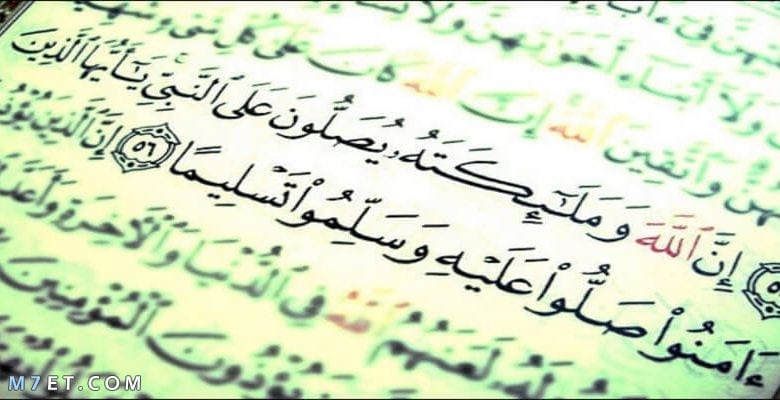 وَلَآ أَبْنَآءِ أَخَوَٰتِهِنَّ وَلَا
وَٱتَّقِينَ ٱللَّهَ إِنَّ ٱللَّهَ كَانَ عَلَىٰ كُلِّ شَىْءٍ
إِنَّ ٱللَّهَ وَمَلَٰٓئِكَتَهُۥ يُصَلُّونَ عَلَى ٱلنَّبِىِّ يَٰٓأَيُّهَا ٱلَّذِينَ
ءَامَنُوا۟ صَلُّوا۟ عَلَيْهِ وَسَلِّمُوا۟ تَسْلِيمًا ٥٦ إِنَّ ٱلَّذِينَ
لَعَنَهُمُ ٱللَّهُ فِى ٱلدُّنْيَا وَٱلْءَاخِرَةِ
يُؤْذُونَ ٱلْمُؤْمِنِينَ
M7ET.COM